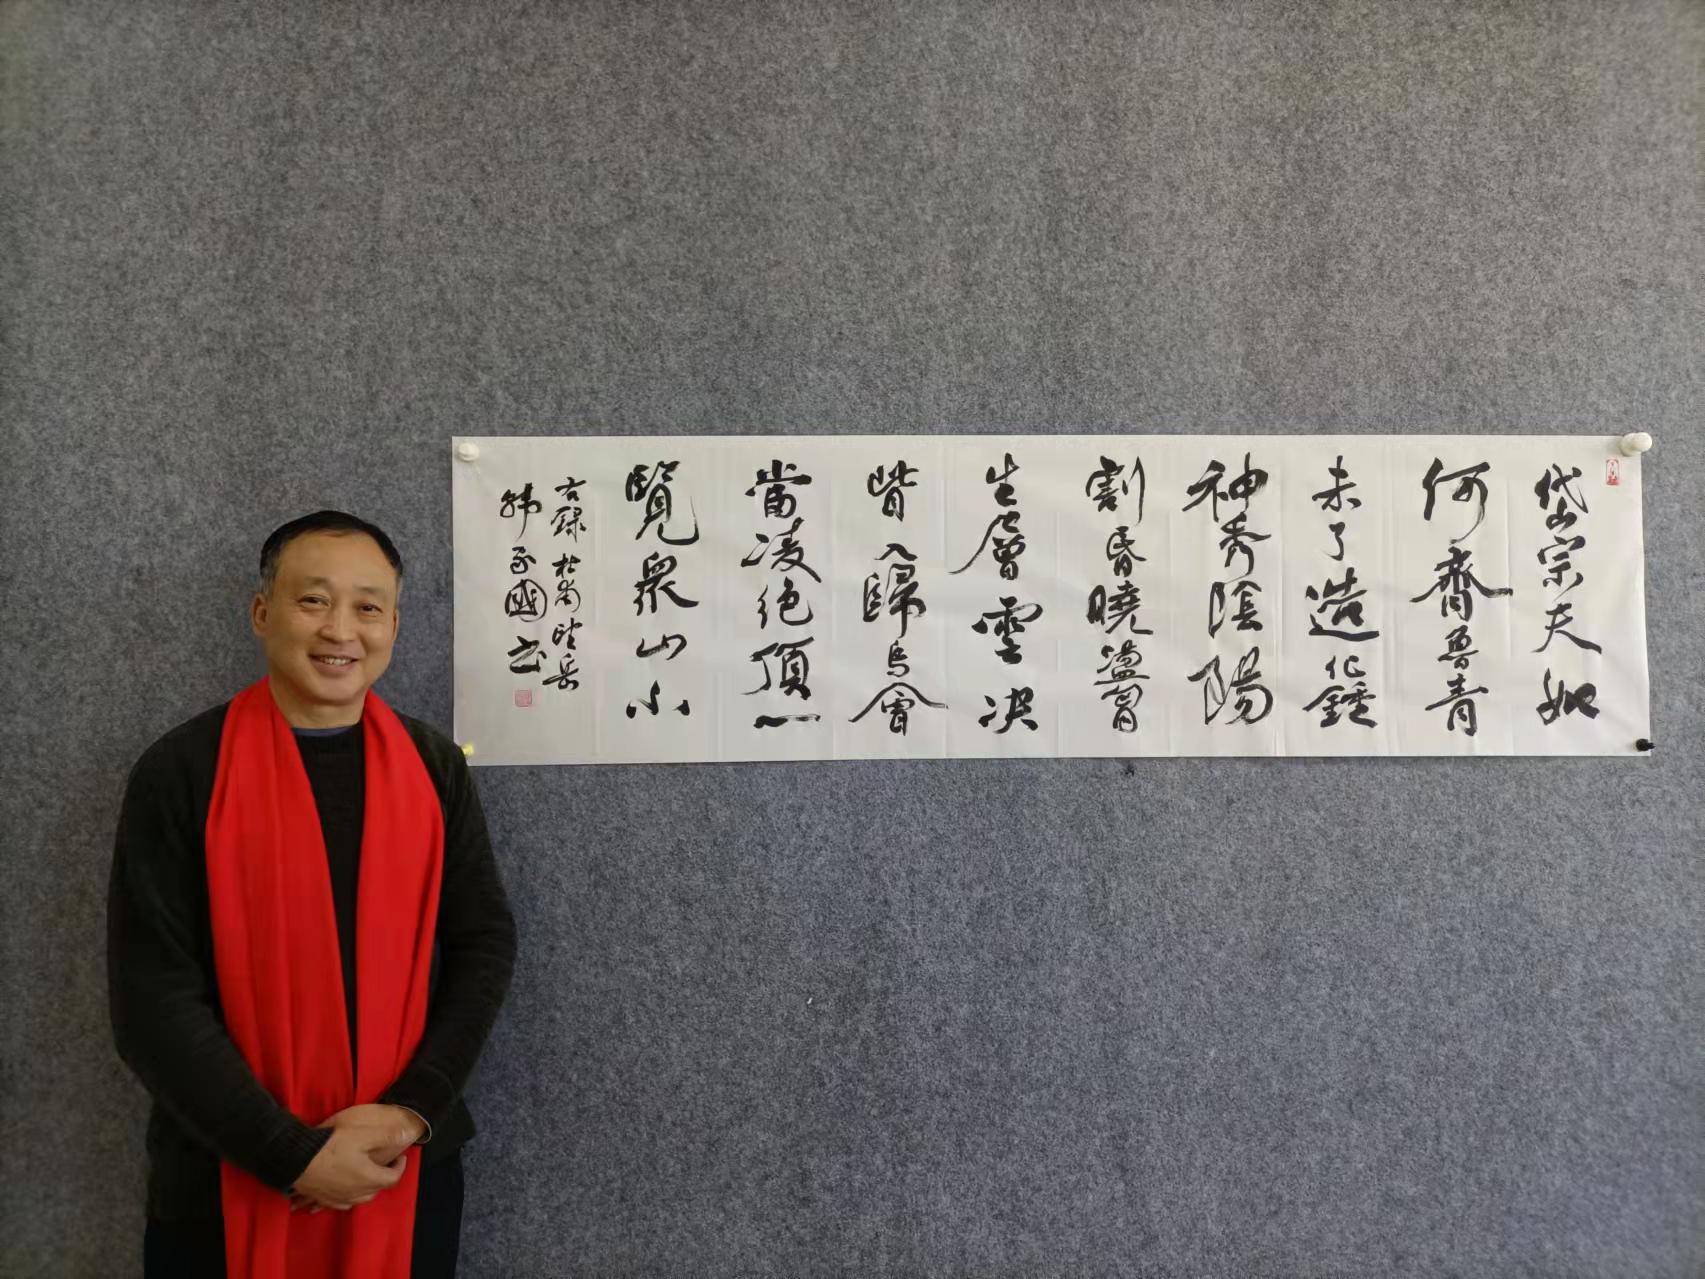 岱宗夫如
何齊魯青
未了造化鍾
神秀陰陽
割昏曉盪胷
生層雲决
眥入歸鳥會
當凌絕頂一
覽眾山小
右錄杜甫望岳
國书